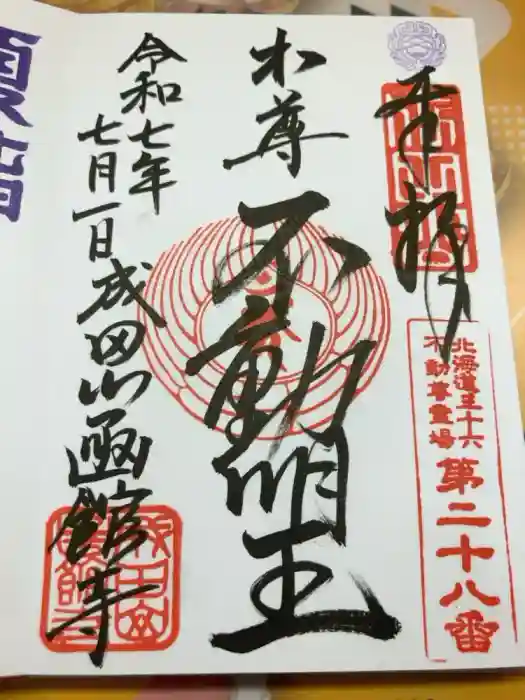 奉拝
北海道三十六
不動尊霊場
第二十八番
本尊
不動明王
令和七年
七月一日
成田山函館寺
夏詣